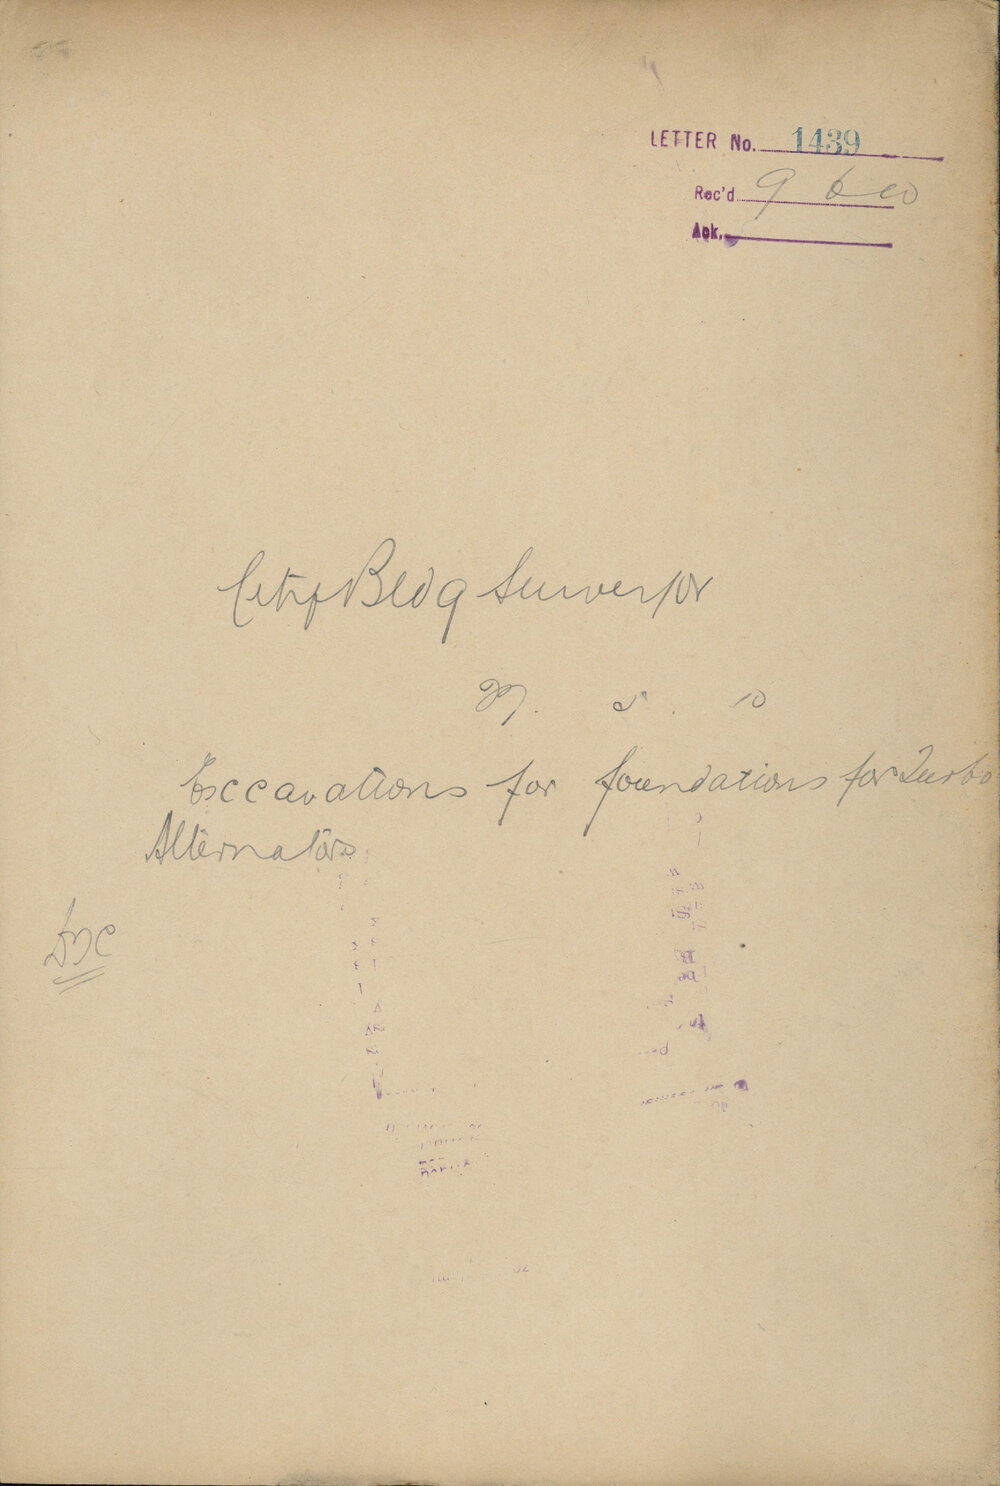 LETTER No. 1439
Rec'd 9 6 10
Ack.
City Bldg Surveyor
27. 5. 10
Exccavations for foundations for Turbo
Alternators